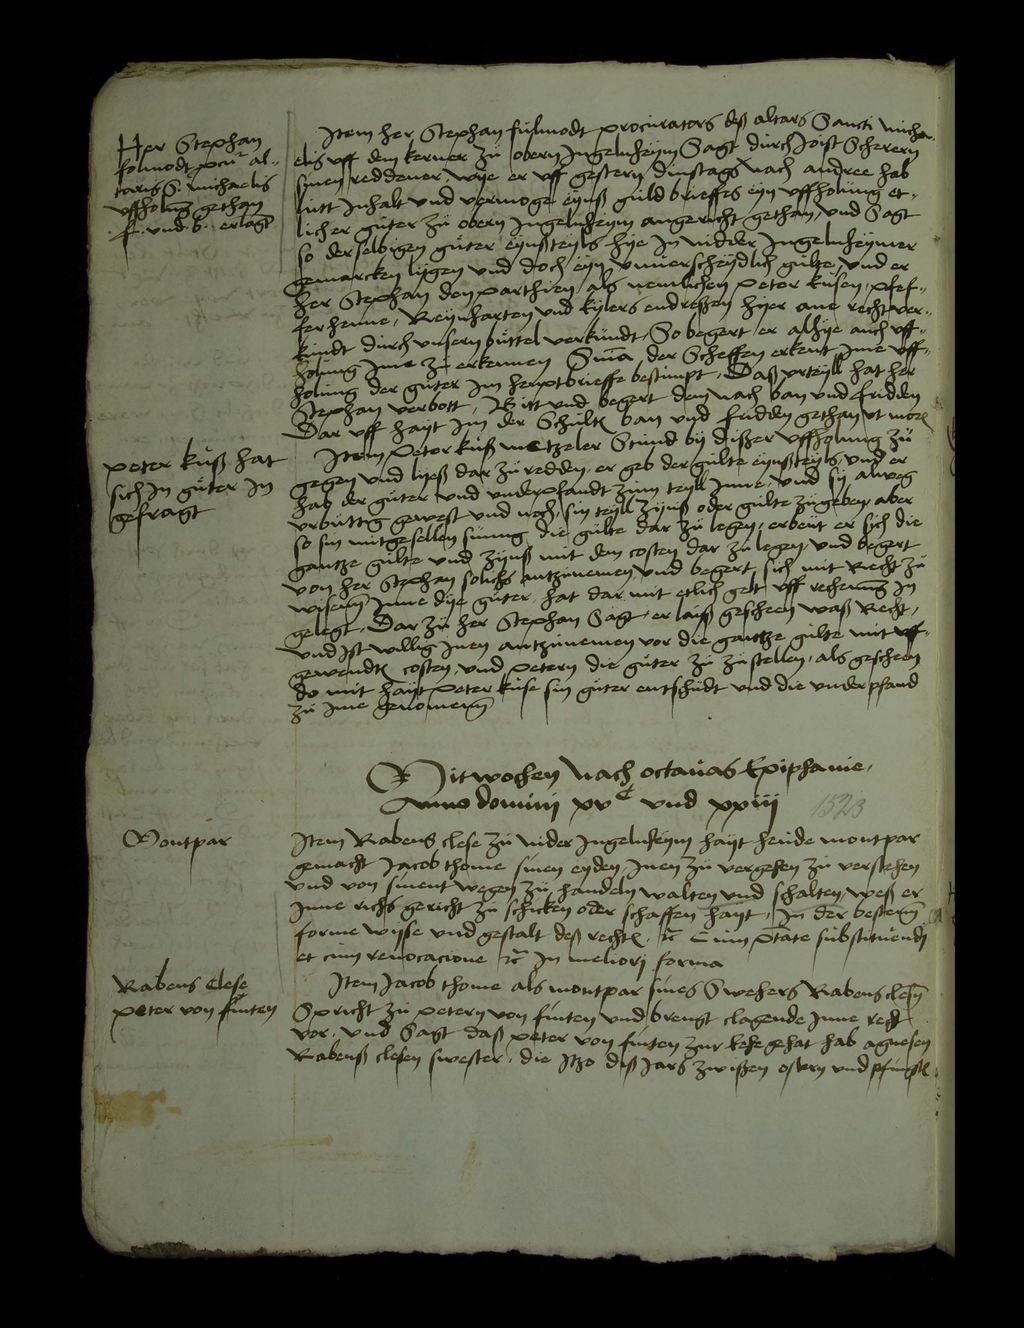 Her Stephan
folmodt pcur al-
taris S. michaelis
uffholung gethan
.f. und .b. erlagt
Item her Stephan fulmodt procurators deß altars Sancti micha-
elis uff dem kerner zu obern Jngelnheym Sagt durch Joist Scherern
synen reddener wye er uff gestern dinstags nach andree hab
lutt Jnhalt und vermoge eynß guld brieffes eyn uffholung et-
licher guter zu obern Jngelnheym angericht gethan, und Sagt
so derselbigen guter eynßteyls hye Jn nidder Jngelnheymer
gemarcken lygen und doch eyn unuerscheydlich gulte, und er
her Stephan den parthien als nemlichen peter kusen, pfef-
fer henne, Reynharten und kylers endreßen hyer ane recht ver-
kundt durch unsern buttel verkundt, So begert er alhye auch uff-
holung Jme zu erkennen Sma der Scheffen erkent Jme uff-
holung der guter Jm heuptbrieffe bestimpt, Daß urteyll hat her
Stephan verbott, Bitt und begert dem nach ban und fridden
Dar uff hayt Jm der Schultes ban und fridden gethan ut mores
peter kuß hat
sich Jn guter Jn
gefragt
Item Peter kuß metzeler Stund by dißer uffholung zu
gegen und lyeß dar zu redden, er geb der gulte eynßteyls, und er
hab der guter und underpfandt zum teyll Jnne, und sy alweg
urbuttig gewest und noch, sin teyll zynß oder gulte zu geben, aber
so sin mitgesellen sumig die gulte dar zu legen, erbeut er sich die
gantze gulte und zynß mit dem costen dar zu legen, und begert
von her Stephan solichs antzunemen, und begert sich mit Recht zu
wisenn Jnne dye guter, hat dar mit etlich gelt uff rechenung Jn
gelegt, Dar zu her Stephan Sagt, er laiß gescheen waß Recht,
und Jst willig Jnen antzunemen vor die gantze gulte mit uff-
gewendten costen, und petern die guter zu zustellen, als gescheen
do mit hayt Peter kuse sin guter entschudt und die underpfand
zu Jme genomenn
Mitwochen Nach octauas Epiphanie,
Anno domini xvc und xxiij 1523
Montpar
Item Rabens clese zu nider Jngelnheym hayt heude montpar
gemacht Jacob thome sinen eyden Jnen zu vergehen zu verstehen
und von sinent wegen zu handeln walten und schalten, weß er
Jnne richs gericht zu schicken oder schaffen hayt, Jn der bestenn
forme wyse und gestalt deß rechtes, etc Cum ptate substituendi
et cum reuocacione etc Jn meliori forma
Rabens Clese
peter von finten
Item Jacob thome als montpar sines Swehers Rabens clesen
Spricht zu petern von finten und brengt clagende Jnne recht
vor, und Sagt daß peter von finten zur kehe gehat hab agnesen
Rabenß clesen swester, die Jtzo diß Jars zwißen ostern und pfingsten